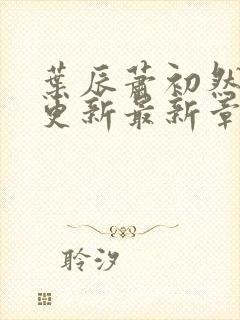 葉辰蕭初然
更新最新章
聆汐